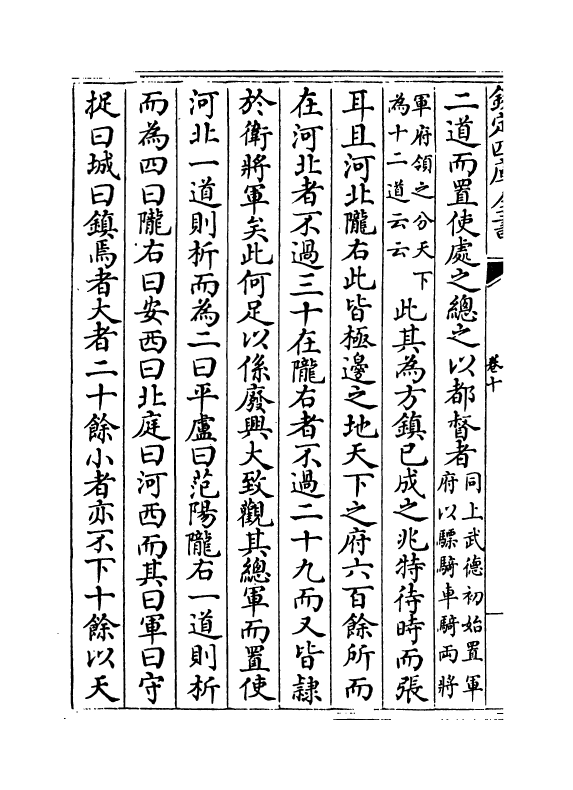 欽定四庫全書
卷十
二道而置使處之總之以都督者同上武德初始置軍府以驃騎車騎両將
軍府領之分天下為十二道云云此其為方鎮已成之兆特待時而張
耳且河北隴右此皆極邊之地天下之府六百餘所而
在河北者不過三十在隴右者不過二十九而又皆隷
於衛將軍矣此何足以係廢興大致觀其總軍而置使
河北一道則析而為二曰平盧曰范陽隴右一道則析
而為四曰隴右曰安西曰北庭曰河西而其曰軍曰守
捉曰城曰鎮焉者大者二十餘小者亦不下十餘以天